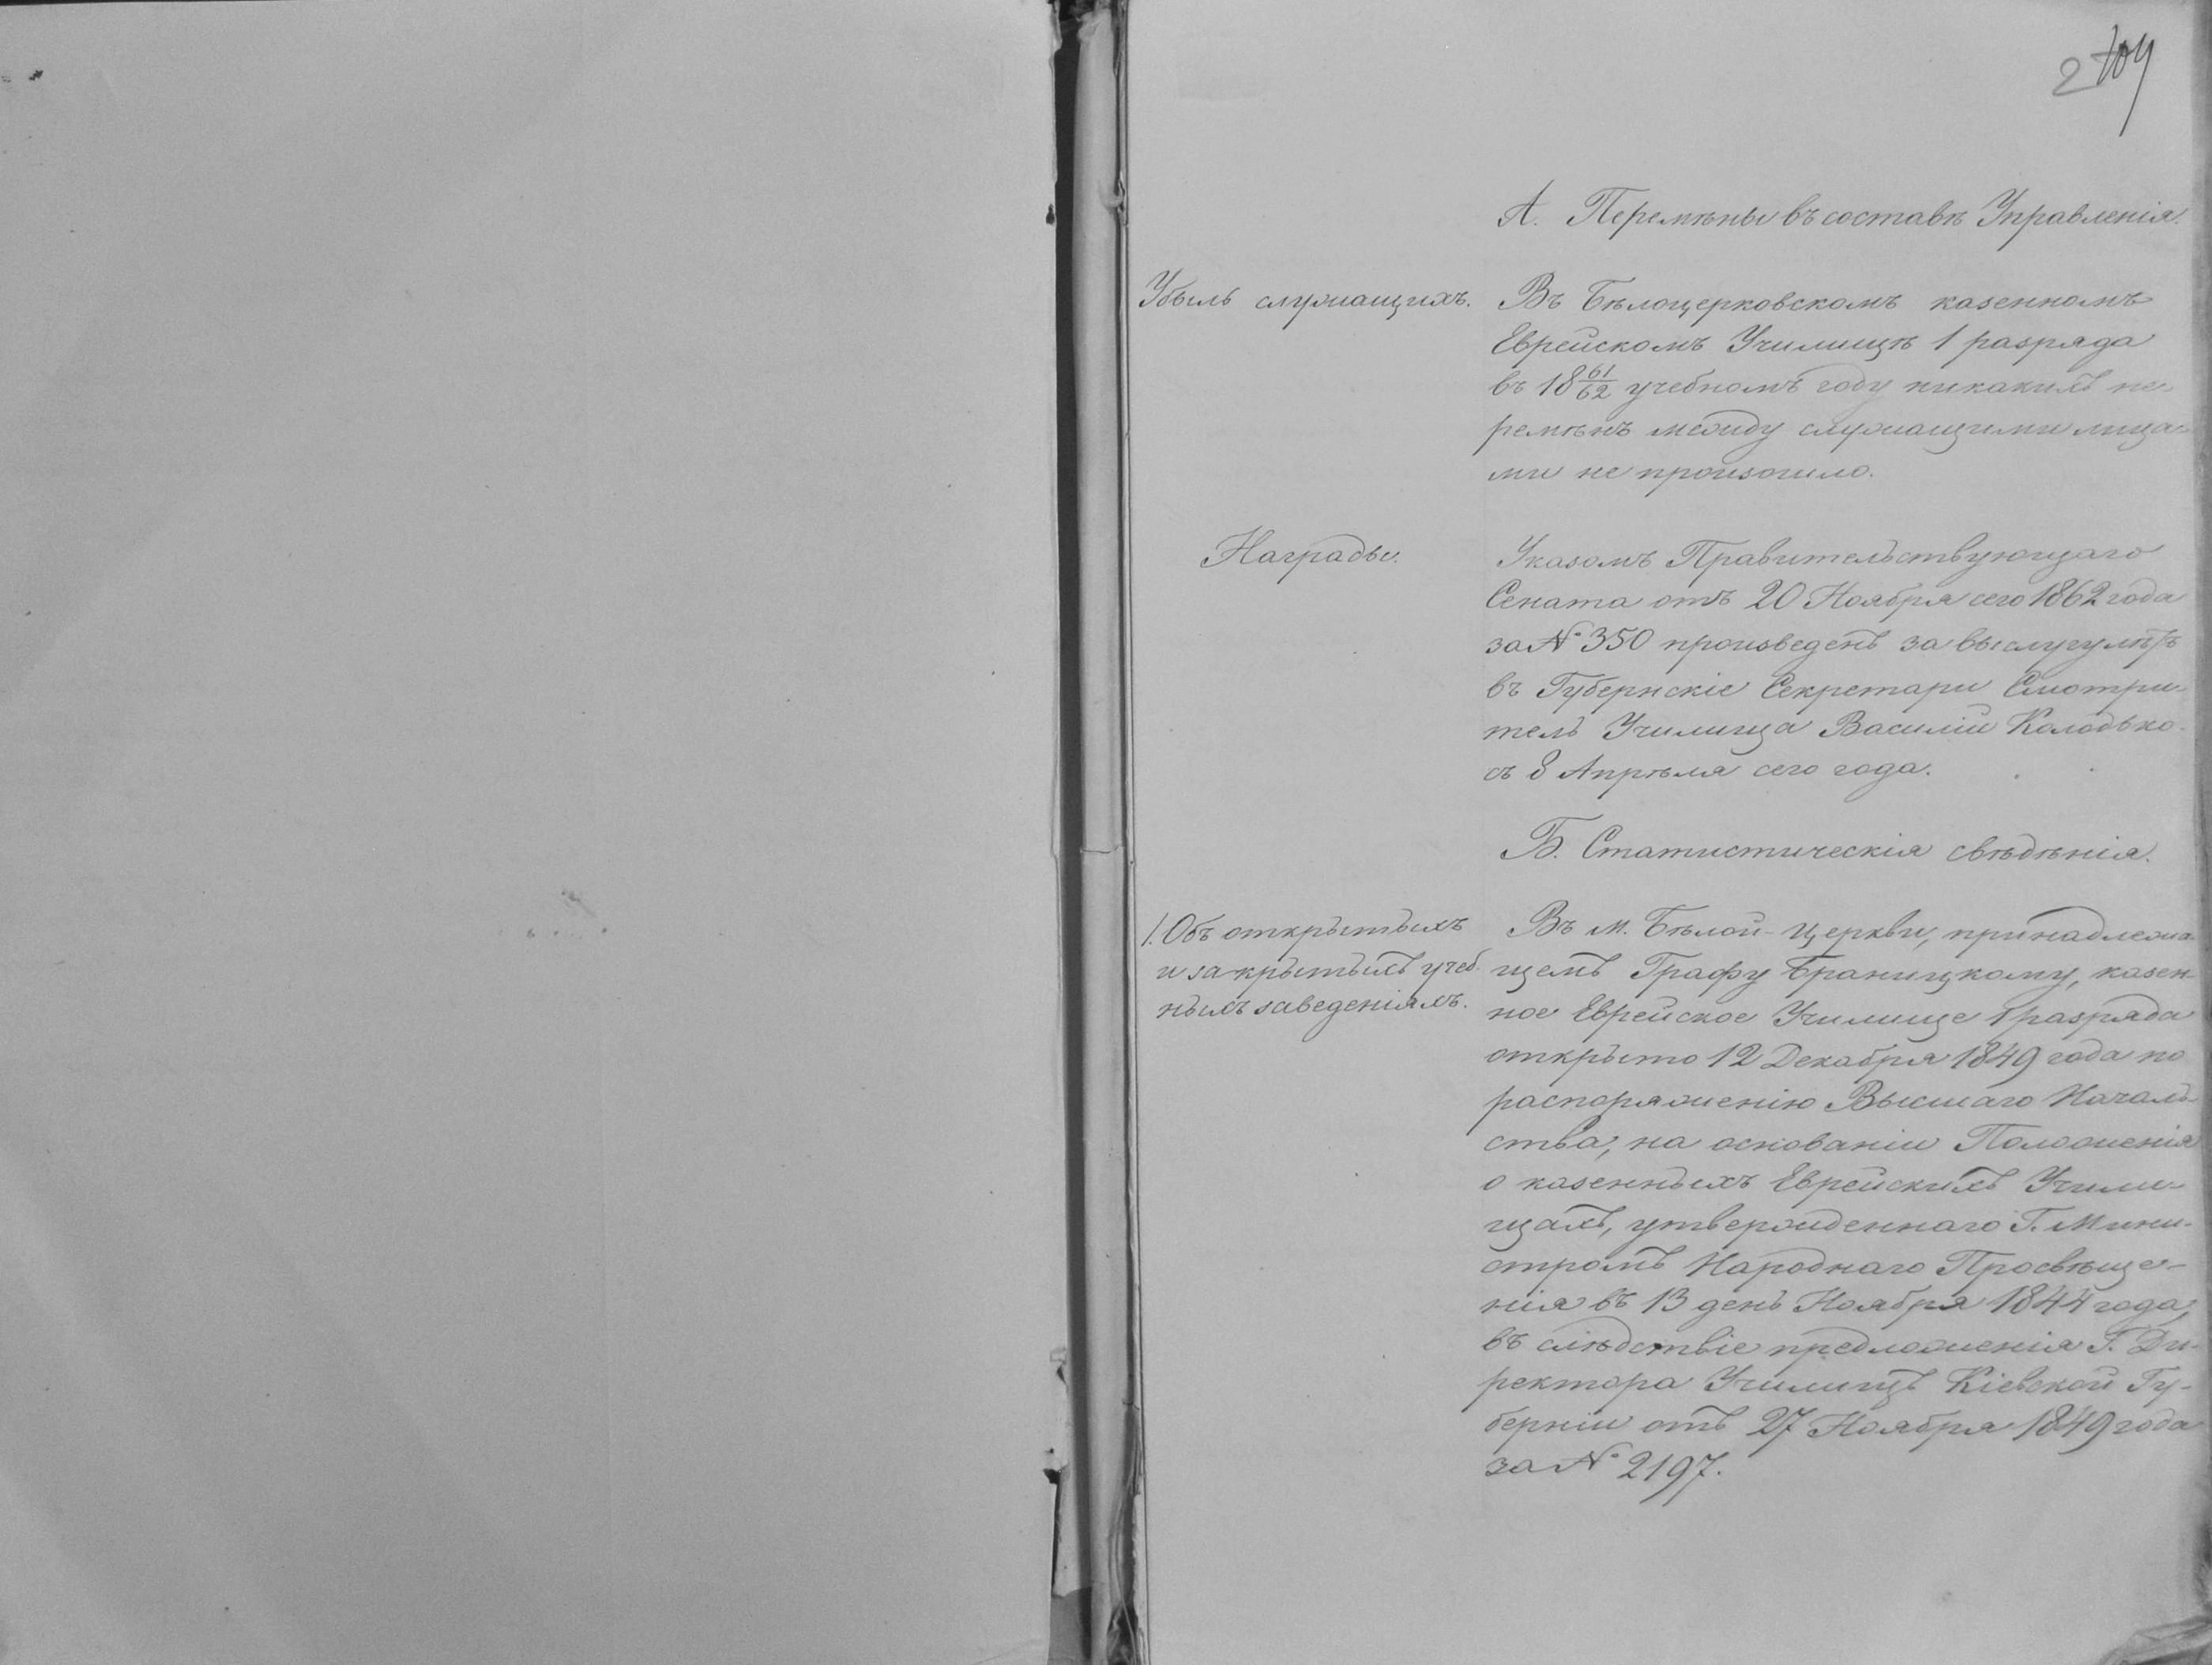 2 109
А. Перемѣны въ составѣ Управленія.
Убыль служащихъ.
Въ Бѣлоцерковскомъ казенномъ
Еврейскомъ Училищѣ 1 разряда
въ 18 61/62 учебномъ году никакихъ пе-
ремѣнъ между служащими лица-
ми не произошло.
Награды.
Указомъ Правительствующаго
Сената отъ 20 Ноября сего 1862 года
за № 350 произведенъ за выслугу лѣтъ
въ Губернскіе Секретари Смотри-
тель Училища Василій Колодько
съ 8 Апрѣля сего года.
Б. Статистическія свѣдѣнія.
1. Объ открытыхъ
и закрытыхъ учеб-
ныхъ заведеніяхъ.
Въ м. Бѣлой-Церкви, принадлежа-
щемъ Графу Браницкому, казен-
ное Еврейское Училище 1 разряда
открыто 12 Декабря 1849 года по
распоряженію Высшаго Началь-
ства, на основаніи Положенія
о казенныхъ Еврейскихъ Учили-
щахъ, утвержденнаго Г. Мини-
стромъ Народнаго Просвѣще-
нія въ 13 день Ноября 1844 года,
въ слѣдствіе предложенія Г. Ди-
ректора Училищъ Кіевской Гу-
берніи отъ 27 Ноября 1849 года
за № 2197.